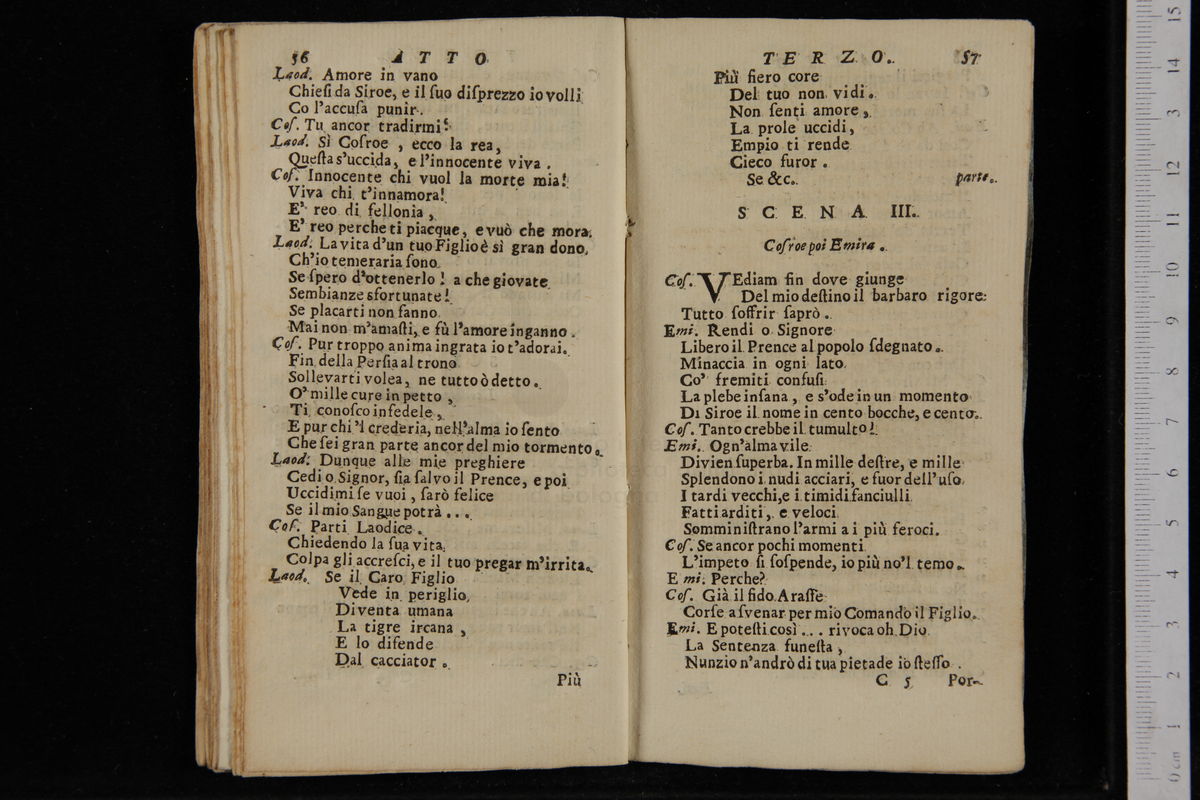 56 A T T O
Laod. Amore in vano
Chieſi da Siroe, e il ſuo diſprezzo io volli
Co l'accuſa punir.
Coſ. Tu ancor tradirmi?
Laod. Sì Coſroe , ecco la rea,
Queſta s'uccida, e l'innocente viva .
Coſ. Innocente chi vuol la morte mia!
Viva chi t'innamora!
E' reo di fellonia ,
E' reo perche ti piacque, e vuò che mora.
Laod. La vita d'un tuo Figlio è sì gran dono,
Ch'io temeraria ſono
Se ſpero d'ottenerlo ! a che giovate
Sembianze sfortunate !
Se placarti non fanno
Mai non m'amaſti, e fù l'amore inganno .
Coſ. Pur troppo anima ingrata io t'adorai.
Fin della Perſia al trono
Sollevarti volea, ne tutto ò detto .
O' mille cure in petto ,
Ti conoſco infedele ,
E pur chi 'l crederia, nell'alma io ſento
Che ſei gran parte ancor del mio tormento.
Laod. Dunque alle mie preghiere
Cedi o Signor, ſia ſalvo il Prence, e poi
Uccidimi ſe vuoi , ſarò felice
Se il mio Sangue potrà ...
Coſ. Parti Laodice .
Chiedendo la ſua vita
Colpa gli accreſci, e il tuo pregar m'irrita.
Laod. Se il Caro Figlio
Vede in periglio,
Diventa umana
La tigre ircana ,
E lo difende
Dal cacciator .
Più
T E R Z O. 57
Più fiero core
Del tuo non vidi .
Non ſenti amore ,
La prole uccidi ,
Empio ti rende
Cieco furor .
Se &c. parte.
S C E N A III.
Coſroe poi Emira .
Coſ. VEdiam fin dove giunge
Del mio deſtino il barbaro rigore:
Tutto ſoffrir ſaprò .
Emi. Rendi o Signore
Libero il Prence al popolo ſdegnato .
Minaccia in ogni lato
Co' fremiti confuſi
La plebe inſana , e s'ode in un momento
Di Siroe il nome in cento bocche, e cento.
Coſ. Tanto crebbe il tumulto!
Emi. Ogn'alma vile
Divien ſuperba. In mille deſtre, e mille
Splendono i nudi acciari, e fuor dell'uſo
I tardi vecchi,e i timidi fanciulli
Fatti arditi , e veloci
Somminiſtrano l'armi a i più feroci.
Coſ. Se ancor pochi momenti
L'impeto ſi ſoſpende, io più no'l temo .
E mi. Perche?
Coſ. Già il fido Araſſe
Corſe a ſvenar per mio Comando il Figlio.
Emi. E poteſti così ... . rivoca oh Dio
La Sentenza funeſta ,
Nunzio n'andrò di tua pietade io ſteſſo .
C 5 Por-